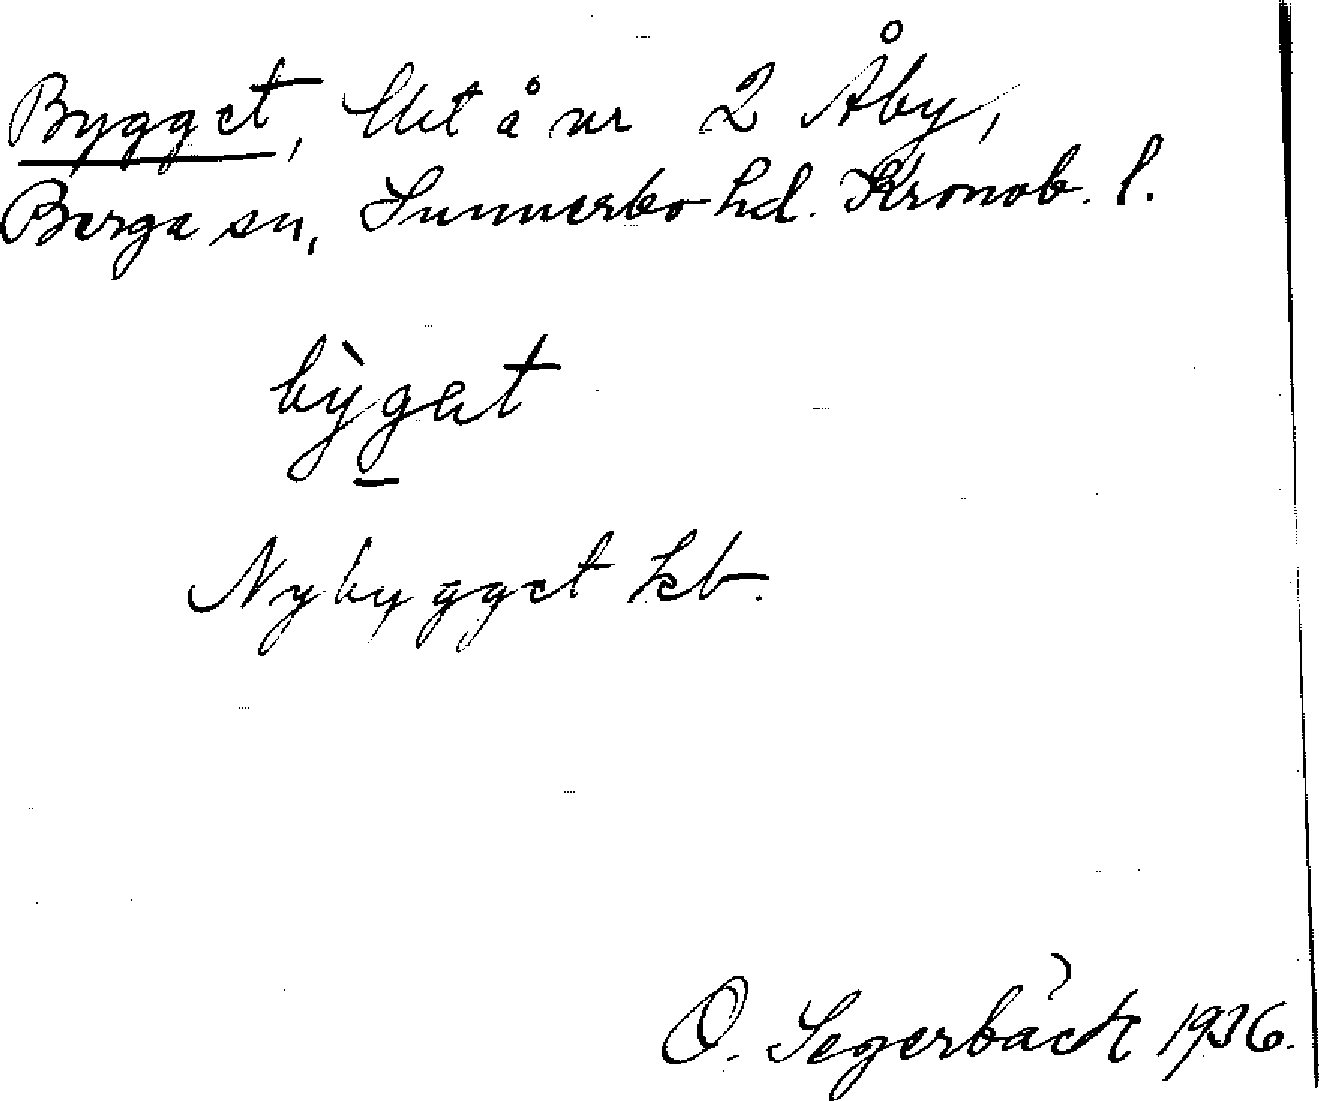 Bygget, lht å nr 2 Åby,
Berga sn, Sunnerbo hd. Kronob. l.
bỳget
Nybygget kb.
O. Segerbäck 1936.